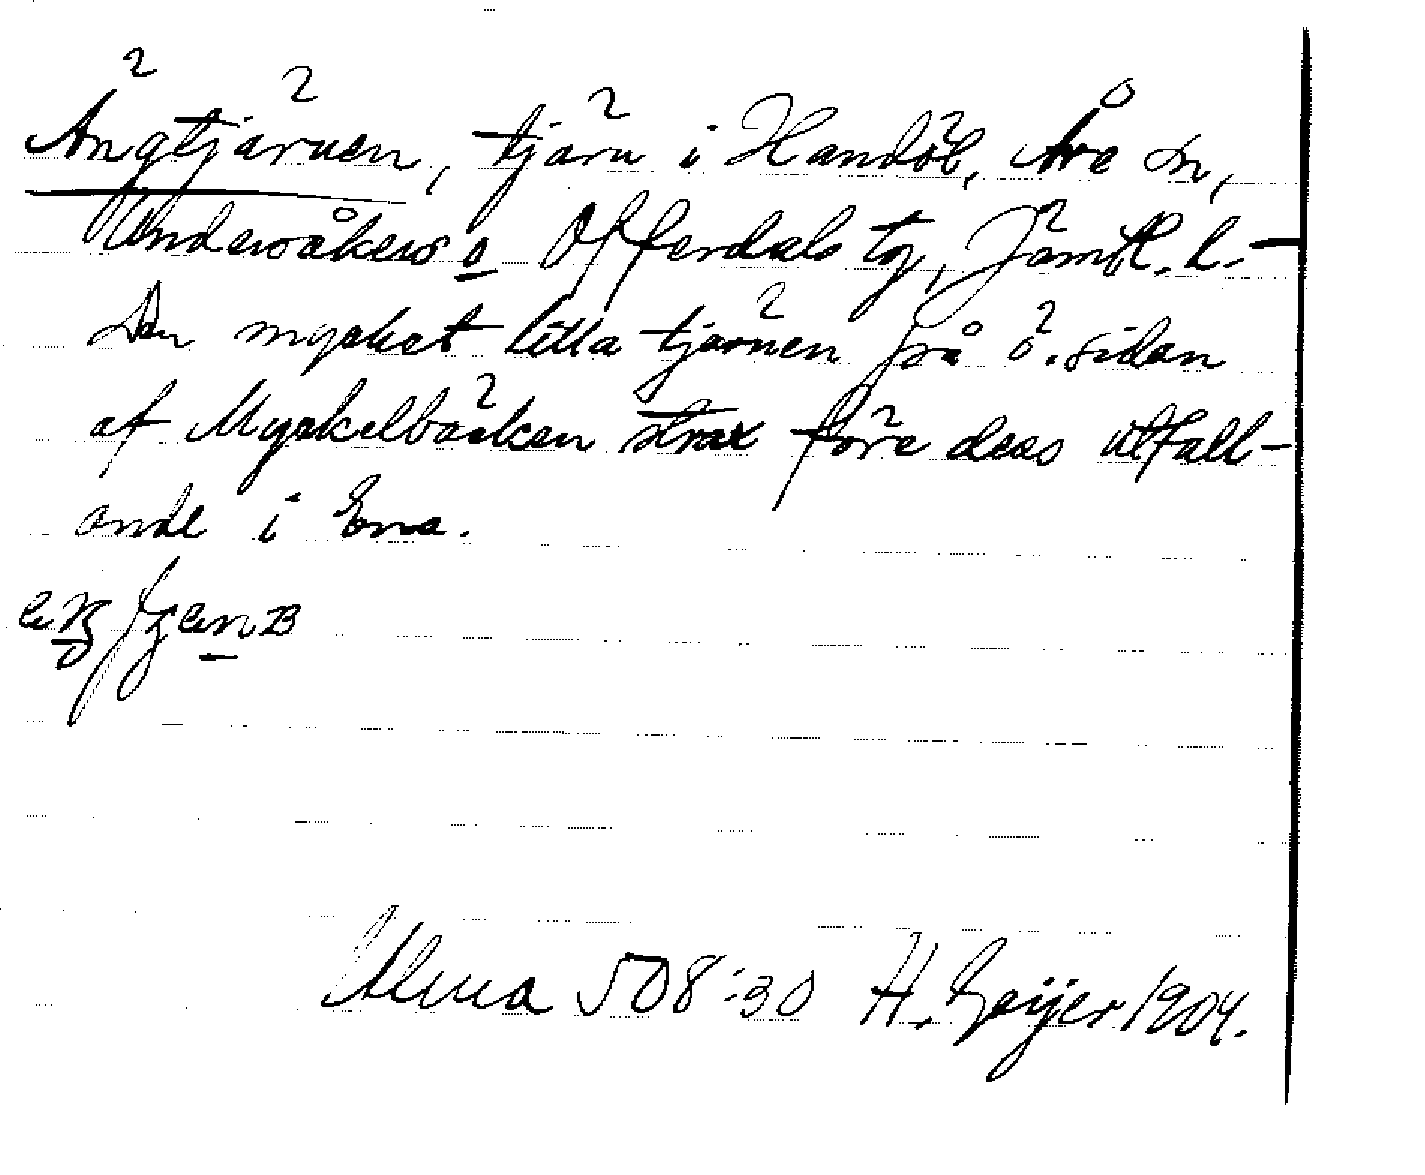 Ängtjärnen, tjärn i Handöl, Åre sn,
Undersåkers o Offerdals tg, Jämtl. l.
Den mycket lilla tjärnen på ö. sidan
af Myckelbäcken strax före dess utfall-
ande i Ena.
Alma 508:30 H. Geijer 1904.